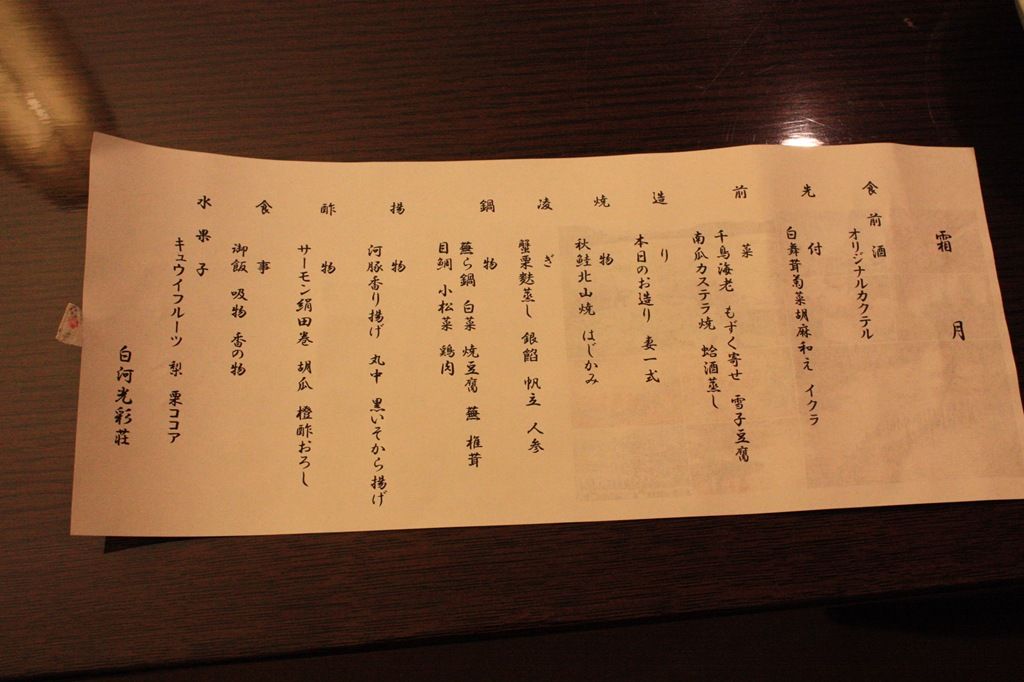 霜月
食前酒
オリジナルカクテル
先付
白舞茸菊菜胡麻和え イクラ
前菜
千鳥海老 もずく寄せ 雪子豆腐
南瓜カステラ焼 蛤酒蒸し
造り
本日のお造り 妻一式
焼物
秋鮭北山焼 はじかみ
凌ぎ
蟹栗麩蒸し 銀餡 帆立 人参
鍋物
蕪ら鍋 白菜 焼豆腐 蕪 椎茸
目鯛 小松菜 鶏肉
揚物
河豚香り揚げ 丸中 黒いそから揚げ
酢物
サーモン絹田巻 胡瓜 橙酢おろし
食事
御飯 吸物 香の物
水果子
キュウイフルーツ 梨 栗ココア
白河光彩荘